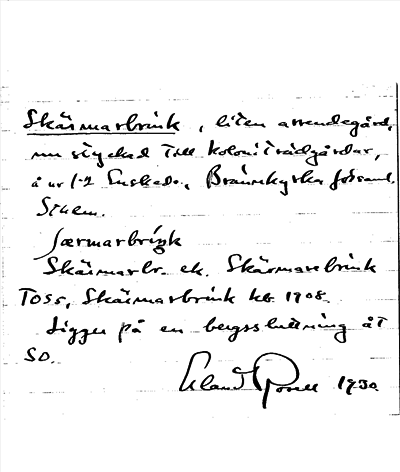 Skärmarbrink, liten arrendegård,
nu styckad till koloniträdgårdar,
å nr 1-2 Enskede, Brännkyrka församl.
Sthlm.
særmarbrink
Skärmarbr. ek. Skärmarebrink
Toss, Skärmarbrink kb. 1908.
Ligger på en bergssluttning åt
SO.
1930